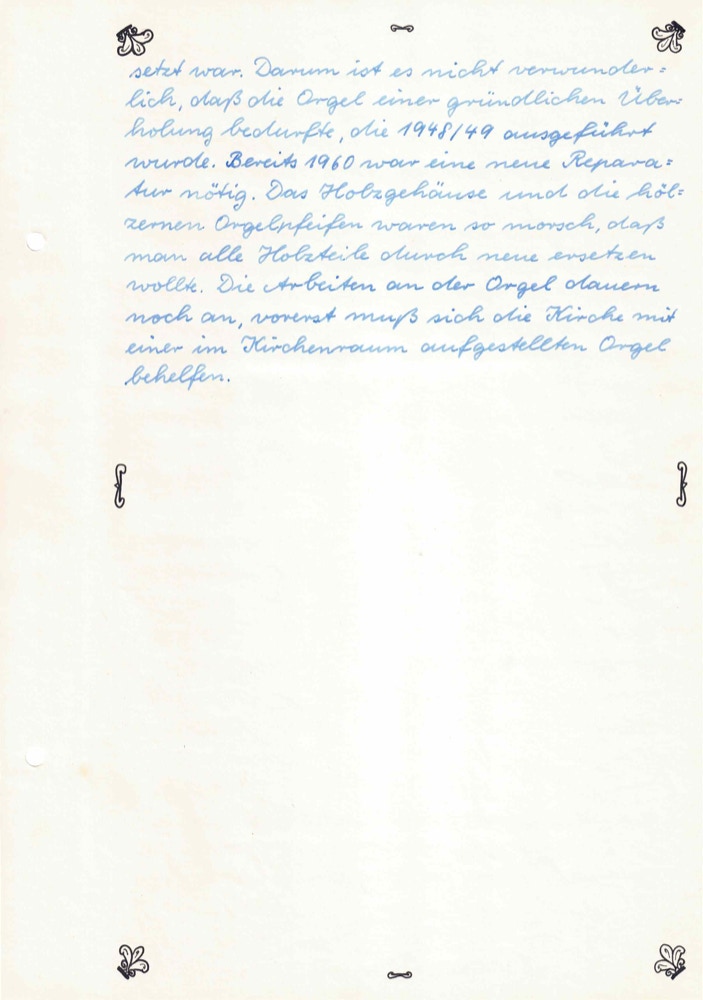 setzt war. Darum ist es nicht verwunder=
lich, daß die Orgel einer gründlichen Über=
holung bedurfte, die 1948/49 ausgeführt
wurde. Bereits 1960 war eine neue Repara=
tur nötig. Das Holzgehäuse und die höl=
zernen Orgelpfeifen waren so morsch, daß
man alle Holzteile durch neue ersetzen
wollte. Die Arbeiten an der Orgel dauern
noch an, vorerst muß sich die Kirche mit
einer im Kirchenraum aufgestellten Orgel
behelfen.